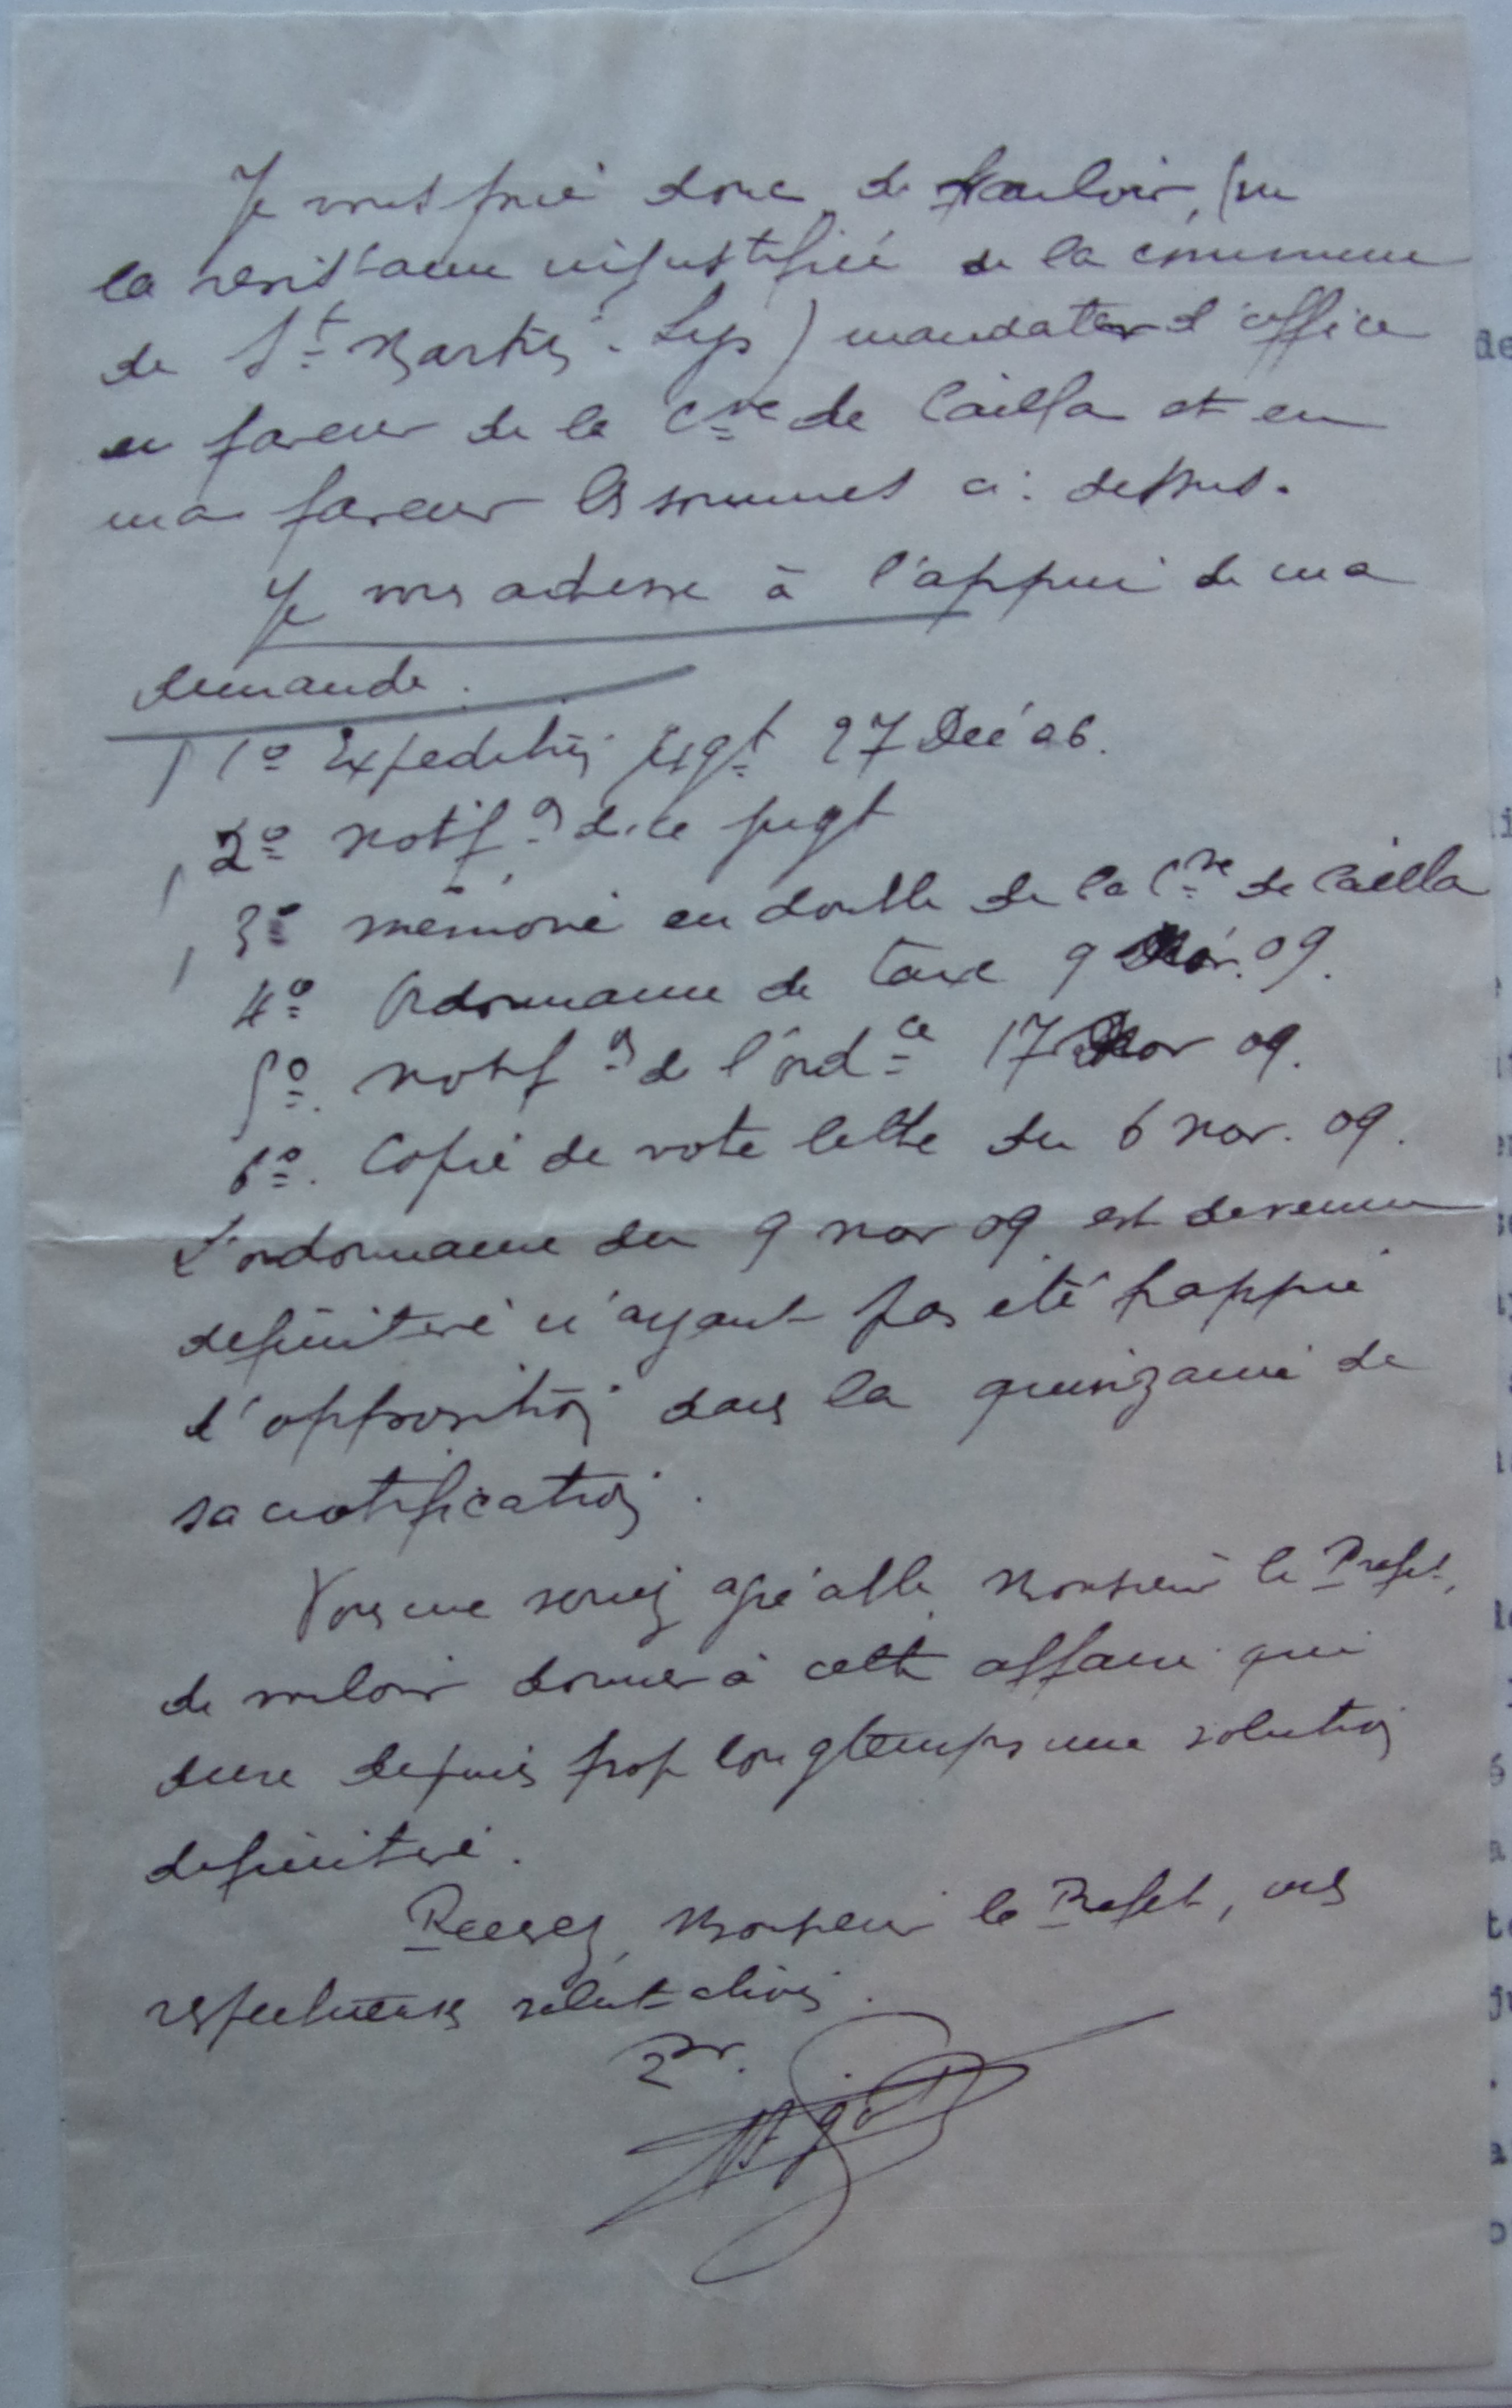 Je vous prie donc de vouloir, (vu
la résistance injustifiée de la commune
de St Martin-Lys) mandater d'office
en faveur de la Cne de Cailla et en
ma faveur les sommes ci-dessus.
Je vous adresse à l'appui de ma
demande.
1o Expédition jugt 27 Déc 06.
2o Notifon de ce jugt
3o mémoire en double de la Cne de Cailla
4o Ordonnance de taxe 9 Nov. 09.
5o. Notifon de l'ordce 17 Nov 09.
6o. Copie de votre lettre du 6 nov. 09.
L'ordonnance du 9 nov 09 est devenue
définitive n'ayant pas été frappée
d'opposition dans la quinzaine de
sa notification.
Vous me seriez agréable, Monsieur le Préfet,
de vouloir donner à cette affaire qui
dure depuis trop longtemps une solution
définitive.
Recevez, Monsieur le Préfet, mes
respectueuses salutations.
de